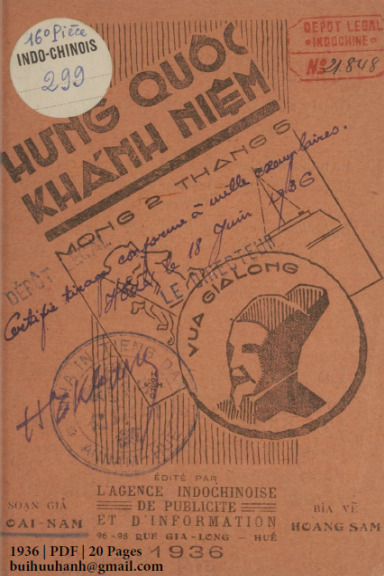 16º Pièce
INDO-CHINOIS
299
DÉPÔT LÉGAL
INDOCHINE
Nº 21.848
HƯNG QUỐC
KHÁNH NIỆM
MỒNG 2 THÁNG 5
DÉPÔT LEGAL
Certifié tirage conforme à mille exemplaires.
Huế le 18 Juin 1936
LE DIRECTEUR
VUA GIALONG
ÉDITÉ PAR
L'AGENCE INDOCHINOISE
DE PUBLICITÉ
ET D'INFORMATION
96-98 RUE GIA-LONG — HUẾ
1936
SOẠN GIẢ
OAI-NAM
BÌA VẼ
HOANG SAM
1936 | PDF | 20 Pages
buihuuhanh@gmail.com